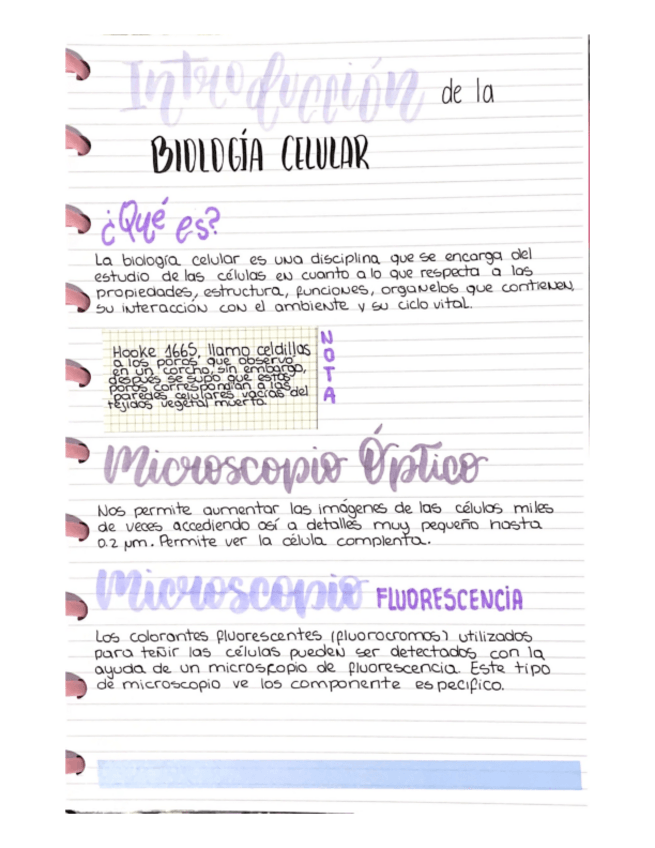 Introducción de la
BIOLOGÍA CELULAR
¿Qué es?
La biología celular es una disciplina que se encarga del
estudio de las células en cuanto a lo que respecta a las
propiedades, estructura, funciones, organelos que contienen,
su interacción con el ambiente y su ciclo vital.
NOTA
Hooke 1665, llamo celdillas
a los poros que observo
en un corcho, sin embargo,
después se supo que estos
poros correspondían a las
paredes celulares vacías del
tejidos vegetal muerto.
Microscopio Óptico
Nos permite aumentar las imágenes de las células miles
de veces accediendo así a detalles muy pequeño hasta
0.2 µm. Permite ver la célula complenta.
Microscopio FLUORESCENCIA
Los colorantes fluorescentes (fluorocromos) utilizados
para teñir las células pueden ser detectados con la
ayuda de un microscopio de fluorescencia. Este tipo
de microscopio ve los componente especifico.